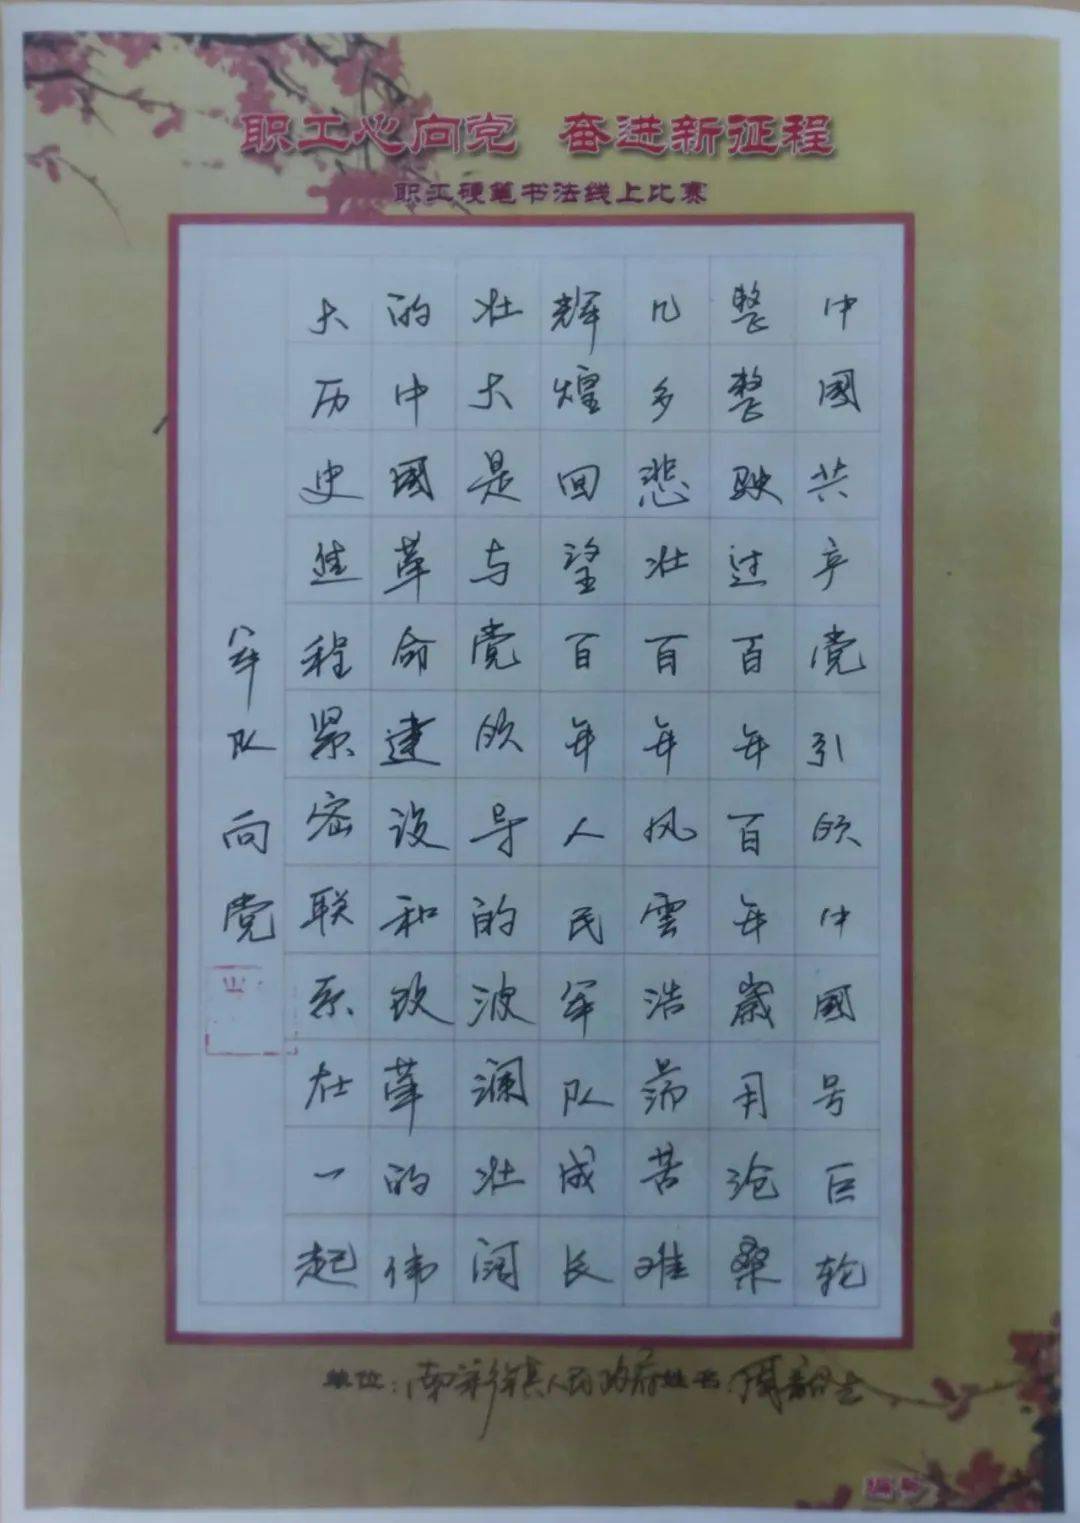 职工心向党 奋进新征程
职工硬笔书法线上比赛
中國共产党引领中國号巨轮
整整驶过百年百年岁月沧桑
几多悲壮百年风雲浩荡苦难
辉煌回望百年人民军队成长
壮大是与党领导的波澜壮阔
的中國革命建设和改革的伟
大历史进程紧密联系在一起
军队向党
单位：南宋乡人民政府姓名：
编号